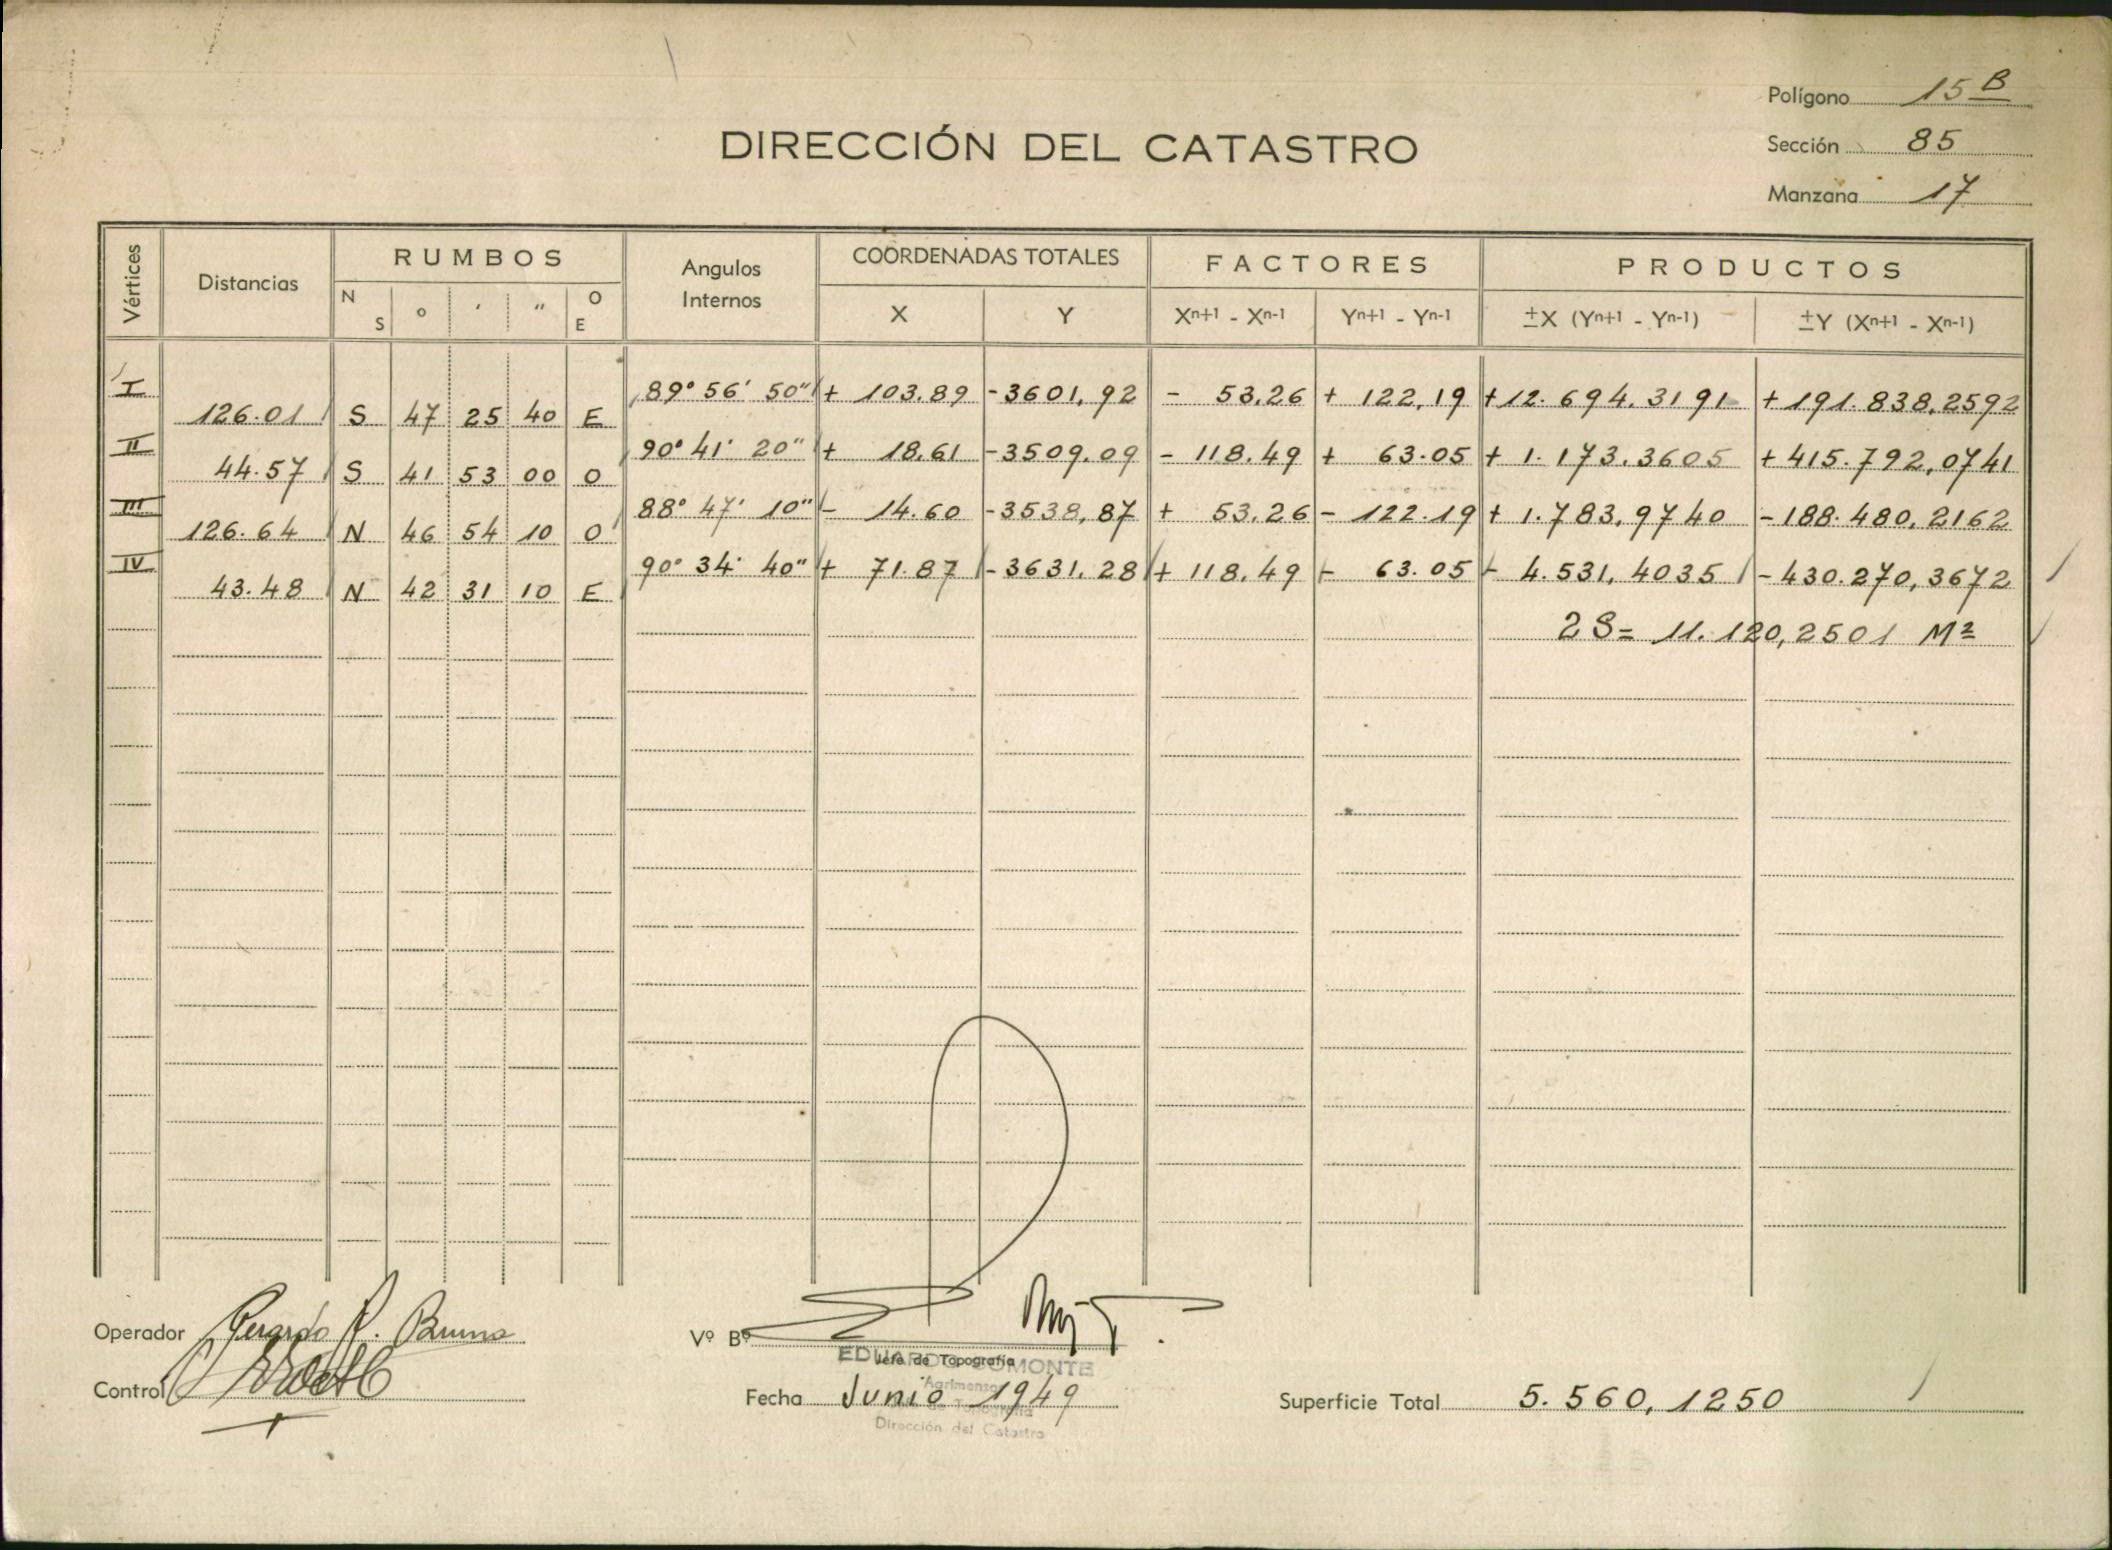 Polígono 15 B
DIRECCIÓN DEL CATASTRO
Sección 85
Manzana 17
Vértices Distancias RUMBOS Angulos Internos COORDENADAS TOTALES FACTORES PRODUCTOS
N S ° ′ ″ O E X Y Xn+1 - Xn-1 Yn+1 - Yn-1 ±X (Yn+1 - Yn-1) ±Y (Xn+1 - Xn-1)
I 89° 56' 50" + 103.89 -3601,92 - 53,26 + 122,19 +12.694.3191 +191.838,2592
126.01 S 47 25 40 E
II 90° 41' 20" + 18.61 -3509.09 - 118.49 + 63.05 + 1.173.3605 +415.792,0741
44.57 S 41 53 00 O
III 88° 47' 10" - 14.60 -3538,87 + 53.26 - 122.19 + 1.783,9740 -188.480,2162
126.64 N 46 54 10 O
IV 90° 34' 40" + 71.87 -3631,28 + 118,49 - 63.05 - 4.531,4035 -430.270,3672
43.48 N 42 31 10 E
2S= 11.120,2501 M2
Operador Gerardo R. Bruno
Vº Bº
Jefe de Topografía
EDUARDO COMONTE
Agrimensor
Control
Fecha Junio 1949
Superficie Total 5.560,1250
Dirección del Catastro